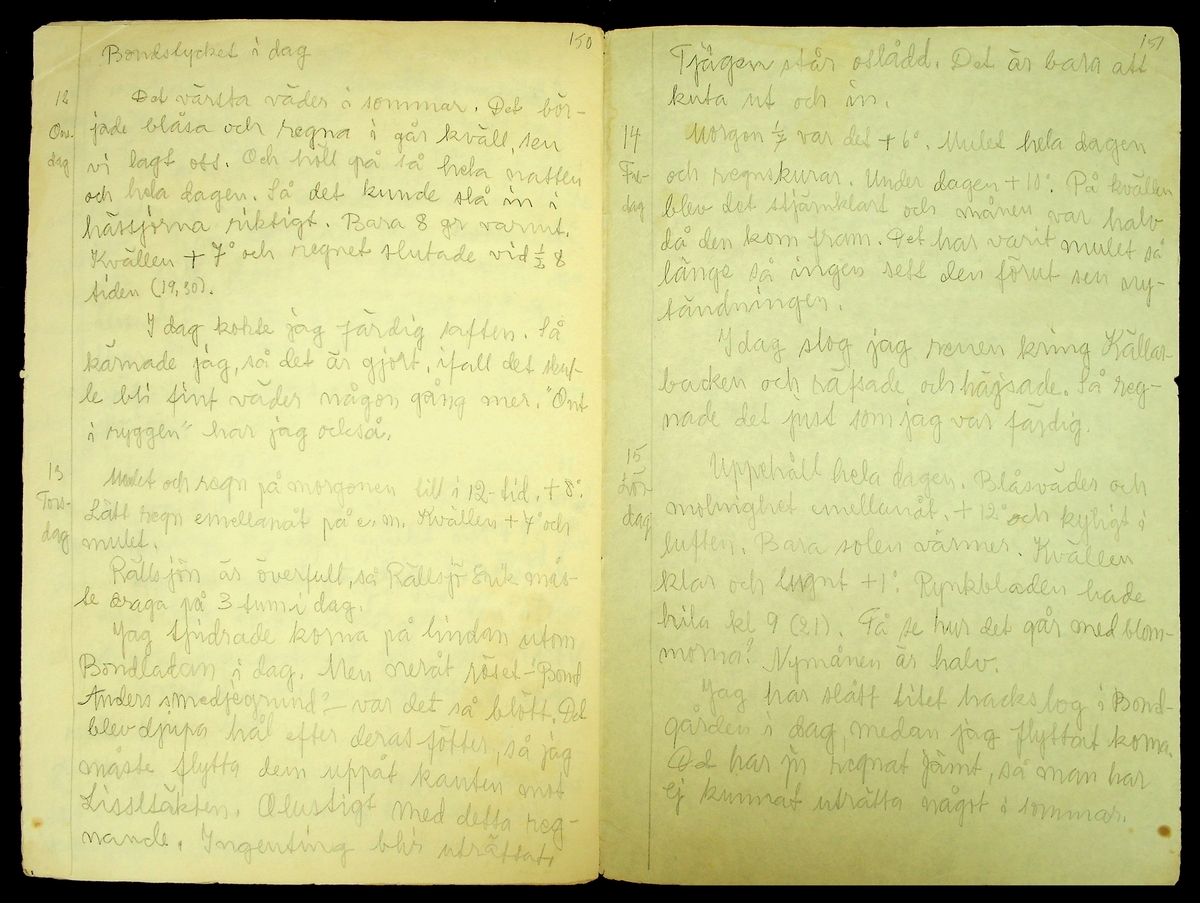 150
Bondstycket i dag
12
Ons-
dag
Det värsta väder i sommar. Det bör-
jade blåsa och regna i går kväll, sen
vi lagt oss. Och höll på så hela natten
och hela dagen. Så det kunde slå in i
hässjorna riktigt. Bara 8 gr varmt.
Kvällen + 7° och regnet slutade vid ½ 8
tiden (19,30).
I dag kokte jag färdig saften. Så
kärnade jag, så det är gjort, ifall det skul-
le bli fint väder någon gång mer. "Ont
i ryggen" har jag också.
13
Tors-
dag
Mulet och regn på morgonen till i 12-tid. + 8°.
Lätt regn emellanåt på e. m. Kvällen + 7° och
mulet.
Rällsjön är överfull, så Rällsjö Erik mås-
te draga på 3 tum i dag.
Jag tjudrade korna på lindan utom
Bondladan i dag. Men neråt röset - "Bond
Anders smedjegrund" - var det så blött. Det
blev djupa hål efter deras fötter, så jag
måste flytta dem uppåt kanten mot
Lissltäkten. Olustigt med detta reg-
nande. Ingenting blir uträttat.
151
Tjägen står oslådd. Det är bara att
kuta ut och in.
14
Fre-
dag
Morgon ½ 7 var det + 6°. Mulet hela dagen
och regnskurar. Under dagen + 10°. På kvällen
blev det stjärnklart och månen var halv
då den kom fram. Det har varit mulet så
länge så ingen sett den förut sen ny-
tändningen.
I dag slog jag renen kring Källar-
backen och räfsade och häjsade. Så reg-
nade det just som jag var färdig.
15
Lör-
dag
Uppehåll hela dagen. Blåsväder och
molnighet emellanåt. + 12° och kyligt i
luften. Bara solen värmer. Kvällen
klar och lugnt + 1°. Rynkbladen hade
hila kl 9 (21). Få se hur det går med blom-
morna? Nymånen är halv.
Jag har slått litet hackslog i Bond-
gården i dag, medan jag flyttat korna.
Det har ju regnat jämt, så man har
ej kunnat uträtta något i sommar.